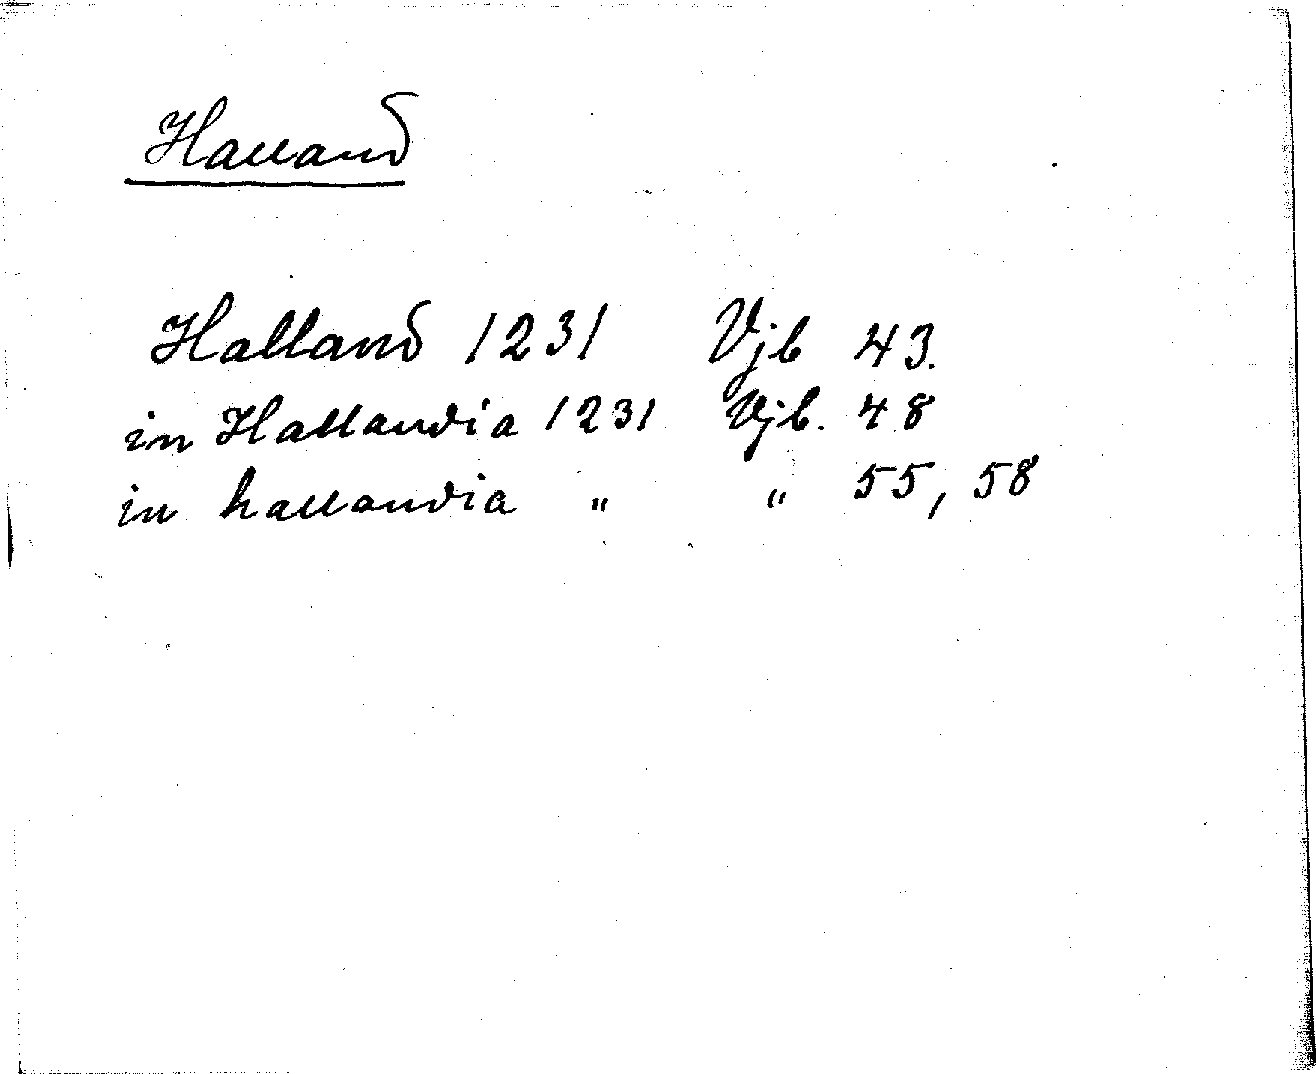 Halland
Halland 1231 Vjb 43.
in Hallandia 1231 Vjb. 48
in hallandia " " 55, 58